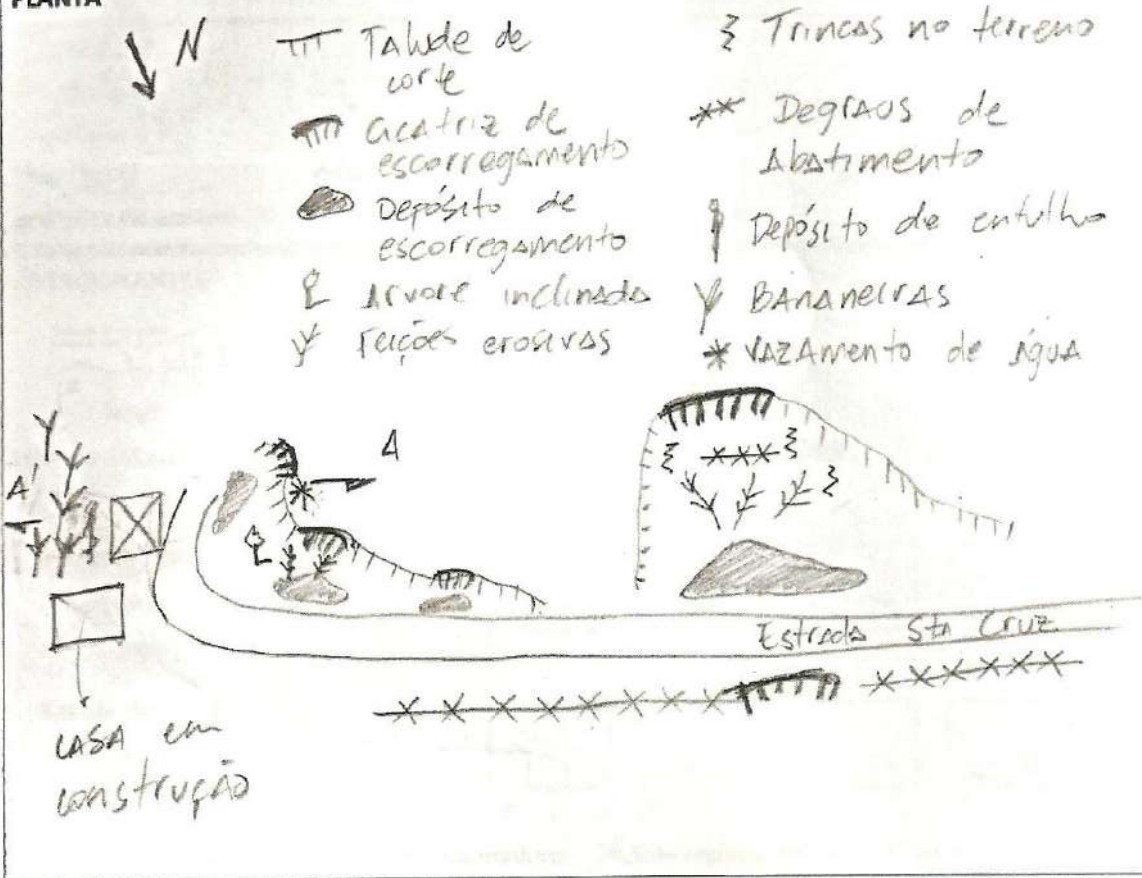 PLANTA
N
Talude de
corte
Cicatriz de
escorregamento
Depósito de
escorregamento
Arvore inclinada
Feições erosivas
Trincas no terreno
Degraus de
Abatimento
Depósito de entulho
BANANEIRAS
VAZAmento de água
A
A'
Estrada Sta Cruz
CASA em
construção